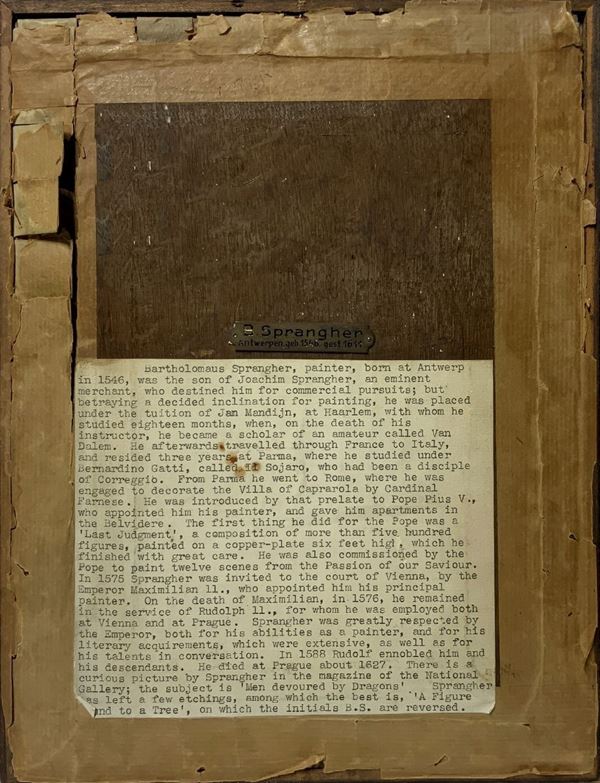 B Sprangher
Antwerpen geb 1546 gest 1611
Bartholomaus Sprangher, painter, born at Antwerp
in 1546, was the son of Joachim Sprangher, an eminent
merchant, who destined him for commercial pursuits; but
betraying a decided inclination for painting, he was placed
under the tuition of Jan Mandijn, at Haarlem, with whom he
studied eighteen months, when, on the death of his
instructor, he became a scholar of an amateur called Van
Dalem. He afterwards travelled through France to Italy,
and resided three years at Parma, where he studied under
Bernardino Gatti, called il Sojaro, who had been a disciple
of Correggio. From Parma he went to Rome, where he was
engaged to decorate the Villa of Caprarola by Cardinal
Farnese. He was introduced by that prelate to Pope Pius V.,
who appointed him his painter, and gave him apartments in
the Belvidere. The first thing he did for the Pope was a
'Last Judgment', a composition of more than five hundred
figures, painted on a copper-plate six feet high, which he
finished with great care. He was also commissioned by the
Pope to paint twelve scenes from the Passion of our Saviour.
In 1575 Sprangher was invited to the court of Vienna, by the
Emperor Maximilian 11., who appointed him his principal
painter. On the death of Maximilian, in 1576, he remained
in the service of Rudolph 11., for whom he was employed both
at Vienna and at Prague. Sprangher was greatly respected by
the Emperor, both for his abilities as a painter, and for his
literary acquirements, which were extensive, as well as for
his talents in conversation. In 1588 Rudolf ennobled him and
his descendants. He died at Prague about 1627. There is a
curious picture by Sprangher in the magazine of the National
Gallery; the subject is 'Men devoured by Dragons' Sprangher
has left a few etchings, among which the best is, 'A Figure
to a Tree', on which the initials B.S. are reversed.